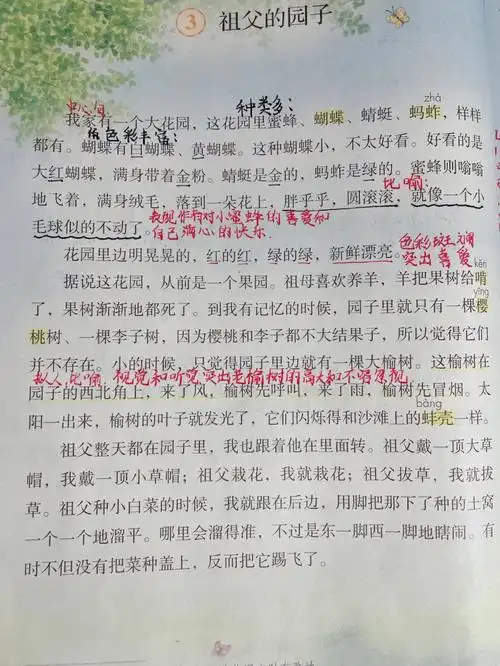 3 祖父的园子
中心句
种类多：
zhà
我家有一个大花园，这花园里蜜蜂、蝴蝶、蜻蜓、蚂蚱，样样
色彩丰富：
都有。蝴蝶有白蝴蝶、黄蝴蝶。这种蝴蝶小，不太好看。好看的是
大红蝴蝶，满身带着金粉。蜻蜓是金的，蚂蚱是绿的。蜜蜂则嗡嗡
比喻：
地飞着，满身绒毛，落到一朵花上，胖乎乎，圆滚滚，就像一个小
毛球似的不动了。
表现作者对小蜜蜂的喜爱和
自己满心的快乐
色彩斑斓
突出喜爱
花园里边明晃晃的，红的红，绿的绿，新鲜漂亮。
kěn
据说这花园，从前是一个果园。祖母喜欢养羊，羊把果树给啃
yīng
了，果树渐渐地都死了。到我有记忆的时候，园子里就只有一棵樱
桃树、一棵李子树，因为樱桃和李子都不大结果子，所以觉得它们
并不存在。小的时候，只觉得园子里边就有一棵大榆树。这榆树在
拟人 比喻 视觉和听觉突出老榆树的高大和不寻常
园子的西北角上，来了风，榆树先呼叫，来了雨，榆树先冒烟。太
bàng
阳一出来，榆树的叶子就发光了，它们闪烁得和沙滩上的蚌壳一样。
祖父整天都在园子里，我也跟着他在里面转。祖父戴一顶大草
帽，我戴一顶小草帽；祖父栽花，我就栽花；祖父拔草，我就拔
草。祖父种小白菜的时候，我就跟在后边，用脚把那下了种的土窝
一个一个地溜平。哪里会溜得准，不过是东一脚西一脚地瞎闹。有
时不但没有把菜种盖上，反而把它踢飞了。